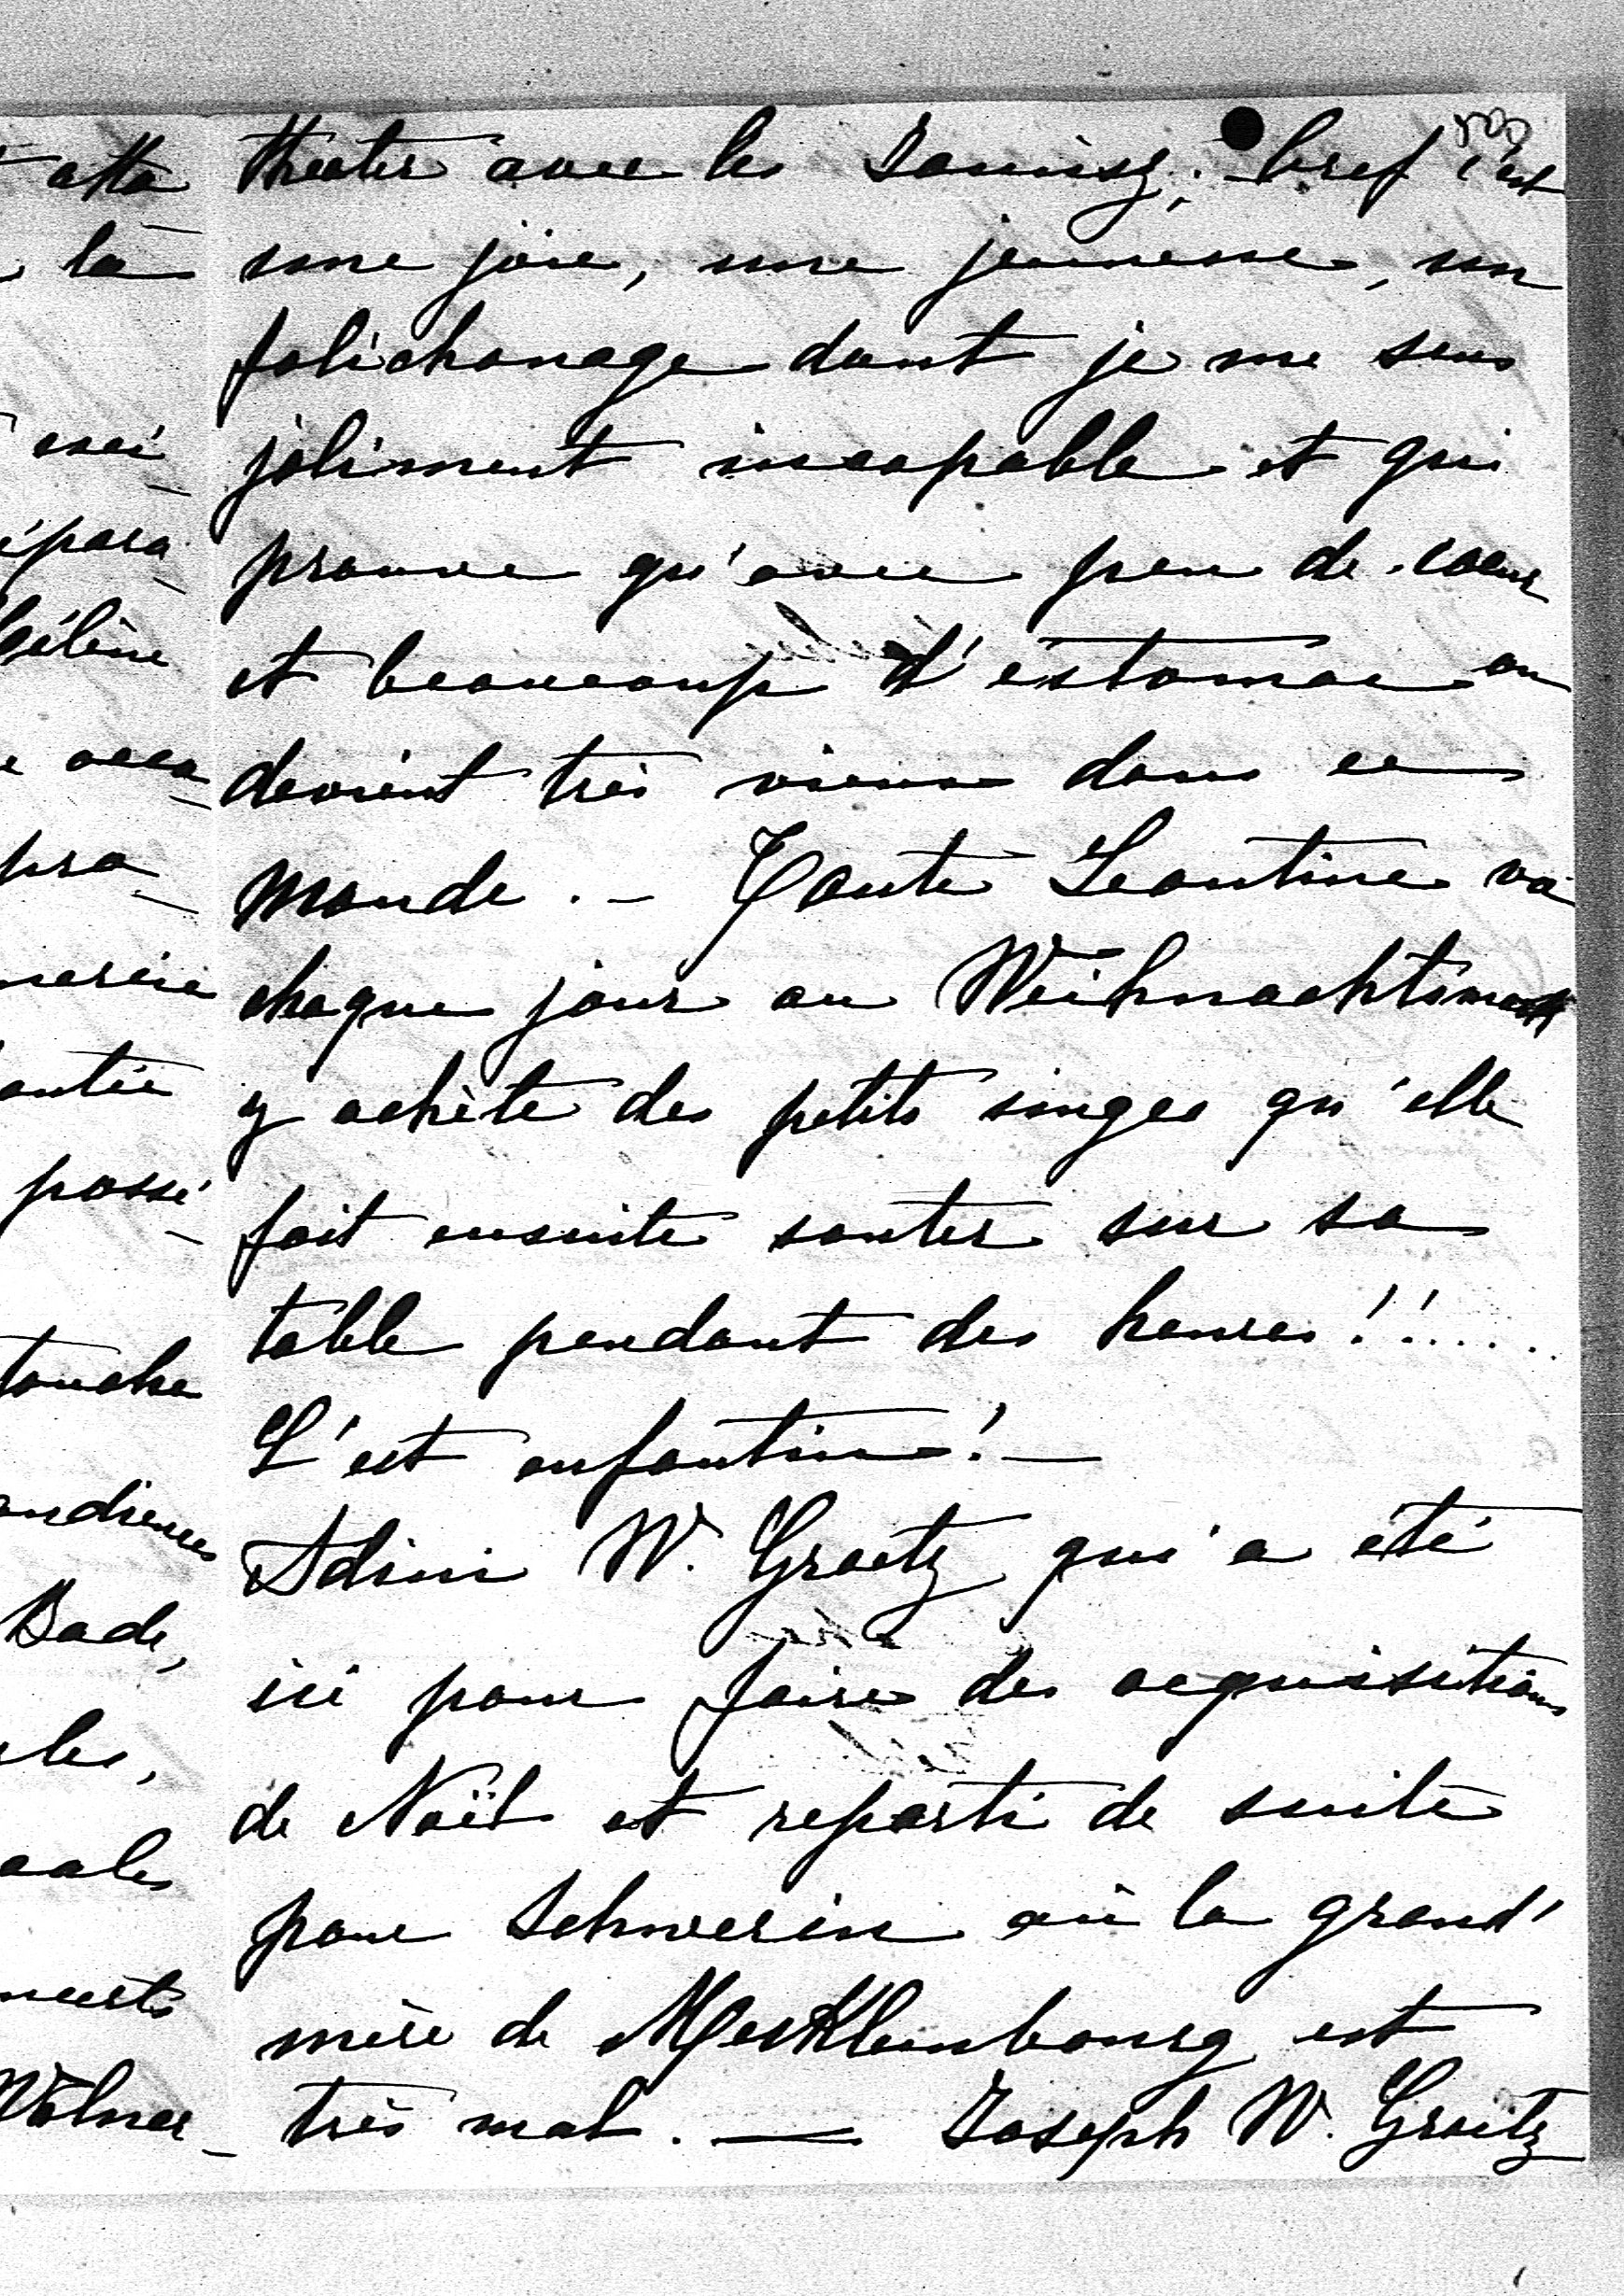 theater avec les ; bref c'est
une joie, une jeunesse, un
folichonage dont je me sens
joliment incapable et qui
prouve qu'avec peu de coeur
et beaucoup d'estomac on
devient très vieux dans ce
monde. – Tante Leontine va
chaque jour au Weihnachtsmarkt
y achète des petits singes qu'elle
fait ensuite sauter sur sa
table pendant des heures!!.....
C'est enfantin! –
Adini W. Graetz qui a été
ici pour faire des acquisitions
de Noël et reparti de suite
pour Schwerin où la grand'
mère de Mecklenbourg est
très mal. — Joseph W. Graetz